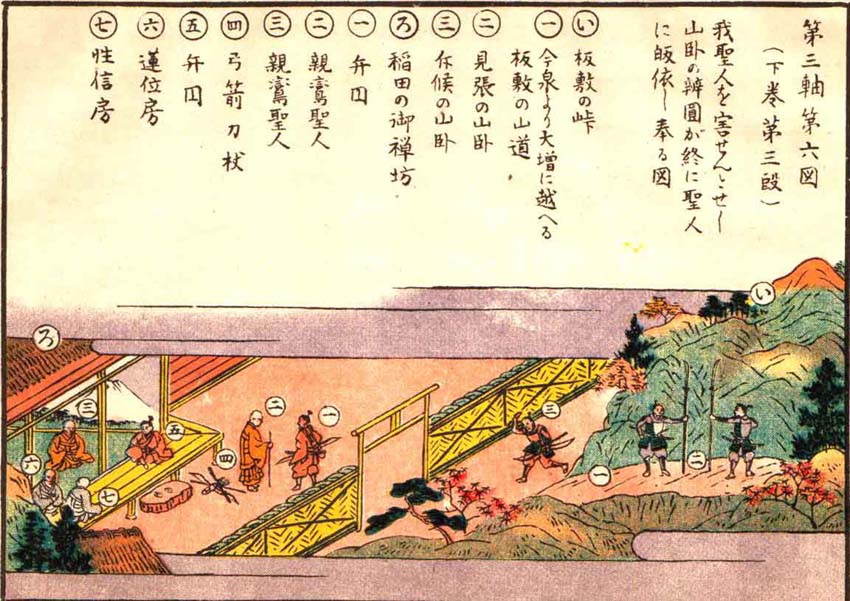 第三軸第六図
(下巻第三段)
我聖人を害せんとせし
山臥の辨圓が終に聖人
に皈依し奉る図
い 板敷の峠
一 今泉より大増に越へる
板敷の山道
二 見張の山臥
三 斥候の山臥
ろ 稲田の御禅坊
一 弁円
二 親鸞聖人
三 親鸞聖人
四 弓箭刀杖
五 弁円
六 蓮位房
七 性信房
い
ろ
三
五
六
七
四
二
一
三
一
二